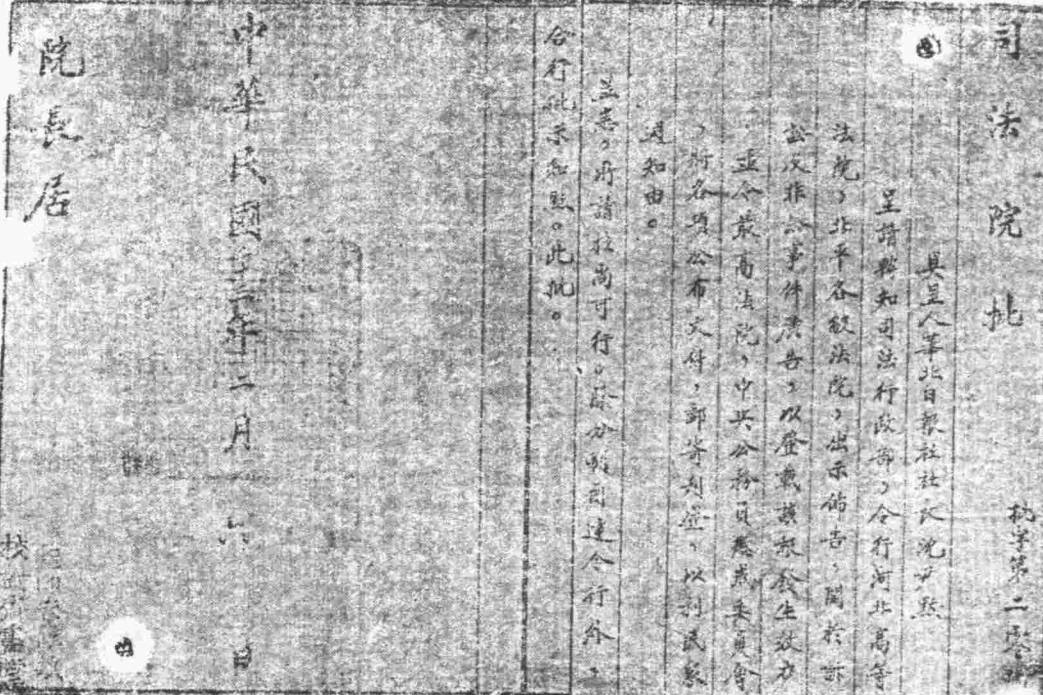 司法院批
批字第二零號
具呈人華北日報社社長沈尹默
呈請轉知司法行政部,令行河北高等
法院,北平各級法院,出示佈告,關於訴
訟及非訟事件廣告,以登載該報發生效力
,並令最高法院,中央公務員懲戒委員會
,將各項公布文件,郵寄刊登,以利民眾
週知由。
呈悉,所請核尚可行。除分別函達令行外,
合行批示知照。此批。
中華民國二年二月六日
院長居
校